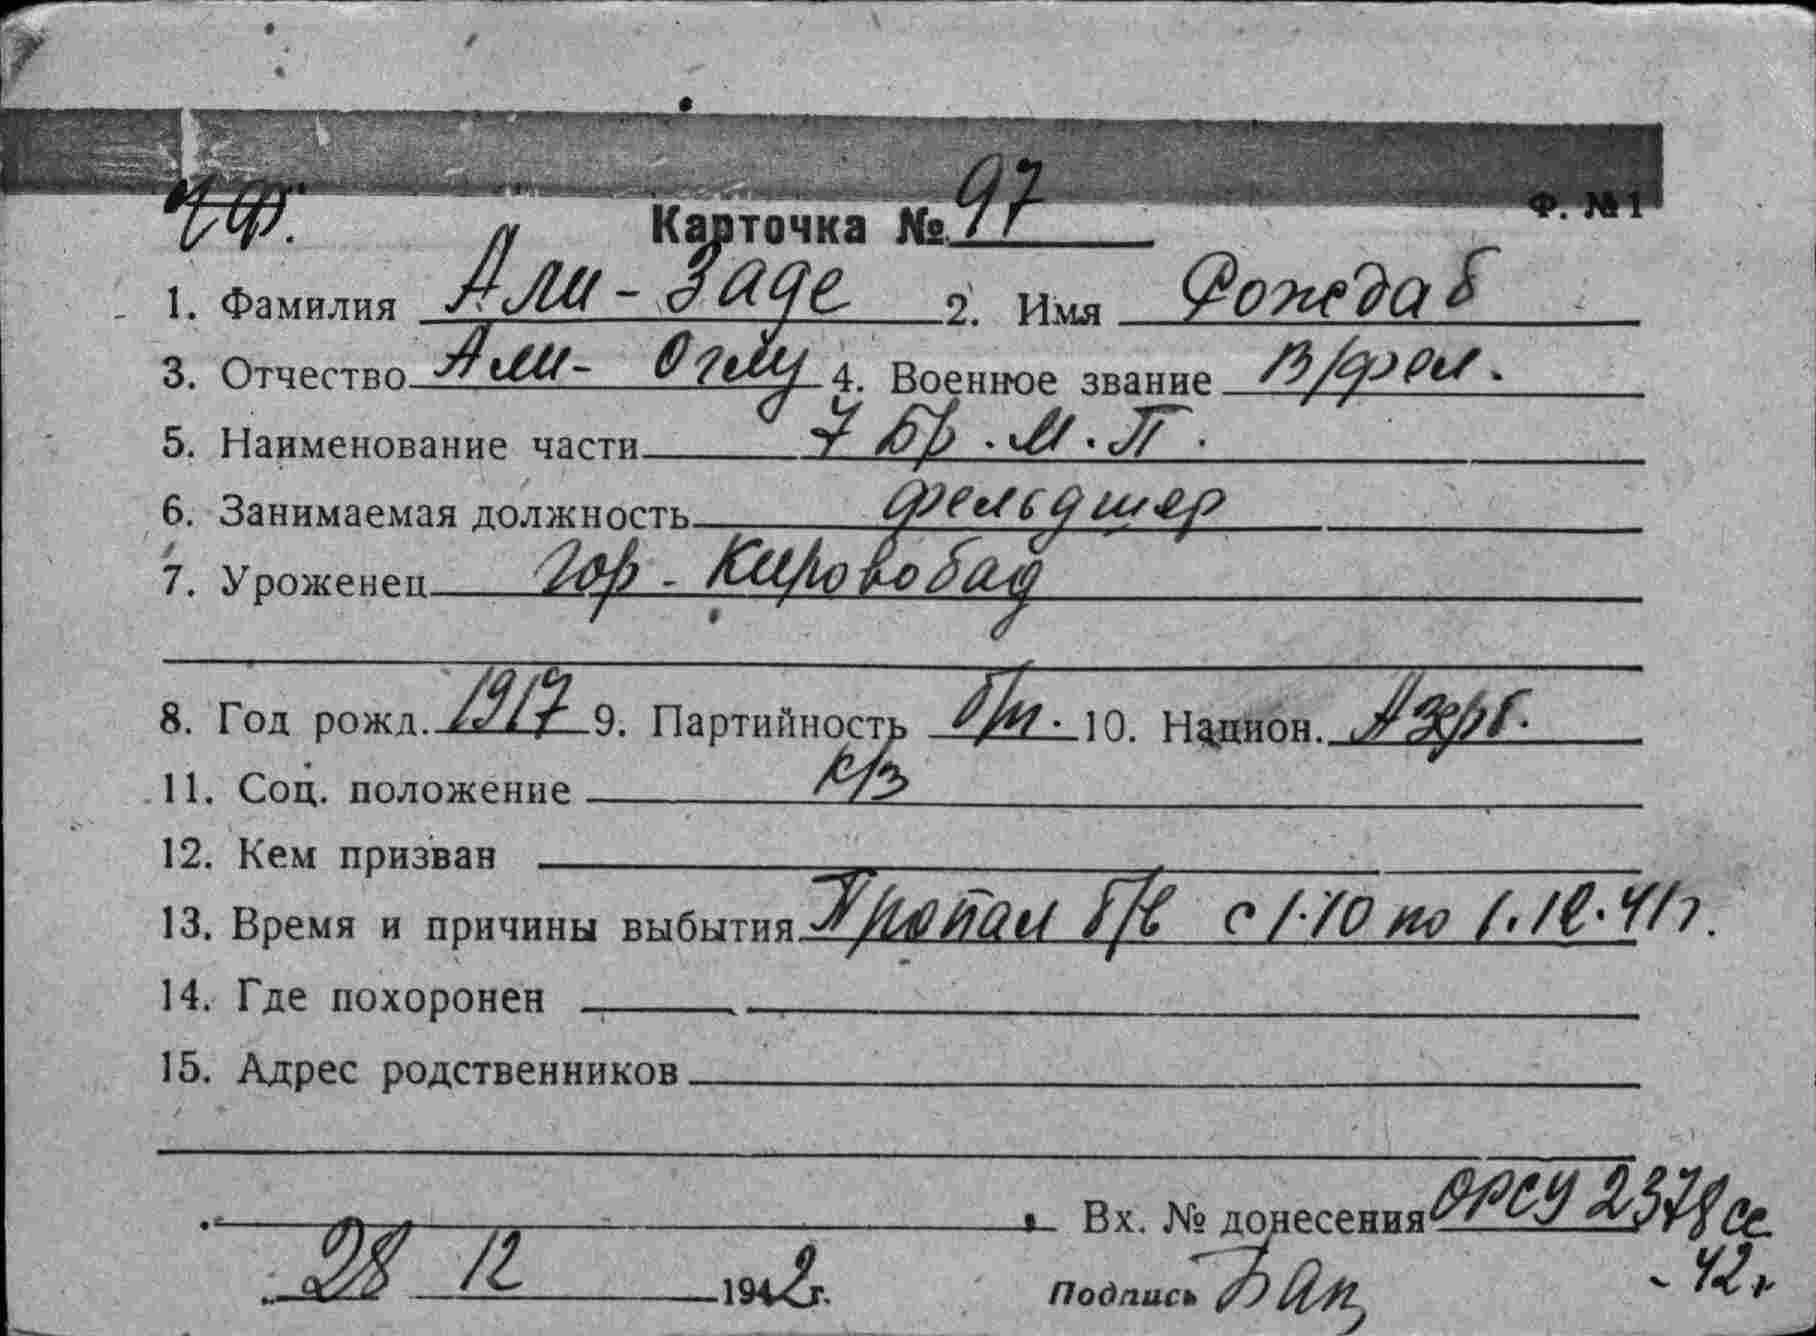 Ф. №1
ЧФ.
Карточка № 97
1. Фамилия Али-Заде 2. Имя Рождаб
3. Отчество Али-Оглу 4. Военное звание в/фел.
5. Наименование части 7 Бр. М. П.
6. Занимаемая должность фельдшер
7. Уроженец гор. Кировобад
8. Год рожд. 1917 9. Партийность 10. Национ. Азерб.
11. Соц. положение
12. Кем призван
13. Время и причины выбытия Пропал б/в с 1.10 по 1.12.41г.
14. Где похоронен
15. Адрес родственников
Вх. № донесения ОРСУ 2378сс
-42г
28 12 1942г. Подпись